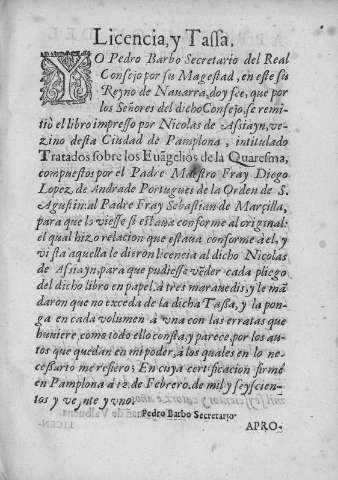 Licencia, y Tassa.
YO Pedro Barbo Secretario del Real
Consejo por su Magestad, en este su
Reyno de Nauarra, doy fee, que por
los Señores del dicho Consejo, se remi-
tiò el libro impresso por Nicolas de Assiayn, ve-
zino desta Ciudad de Pamplona, intitulado
Tratados sobre los Euãgelios de la Quaresma,
compuestos por el Padre Maestro Fray Diego
Lopez, de Andrade Portugues de la Orden de S.
Agustin al Padre Fray Sebastian de Marçilla,
para que lo viesse si estaua conforme al original:
el qual hizo relacion que estaua conforme a el, y
vista aquella le dieron licencia al dicho Nicolas
de Assiayn, para que pudiesse vẽder cada pliego
del dicho libro en papel, à tres marauedis, y le mã
daron que no exceda de la dicha Tassa, y la pon-
ga en cada volumen à vna con las erratas que
huuiere, como todo ello consta, y parece, por los au-
tos que quedan en mi poder, à los quales en lo ne-
cessario me refiero; En cuya certificacion firmè
en Pamplona à 12. de Febrero, de mil y seyscien-
tos y veynte y vno.
Pedro Barbo Secretario.
APRO-